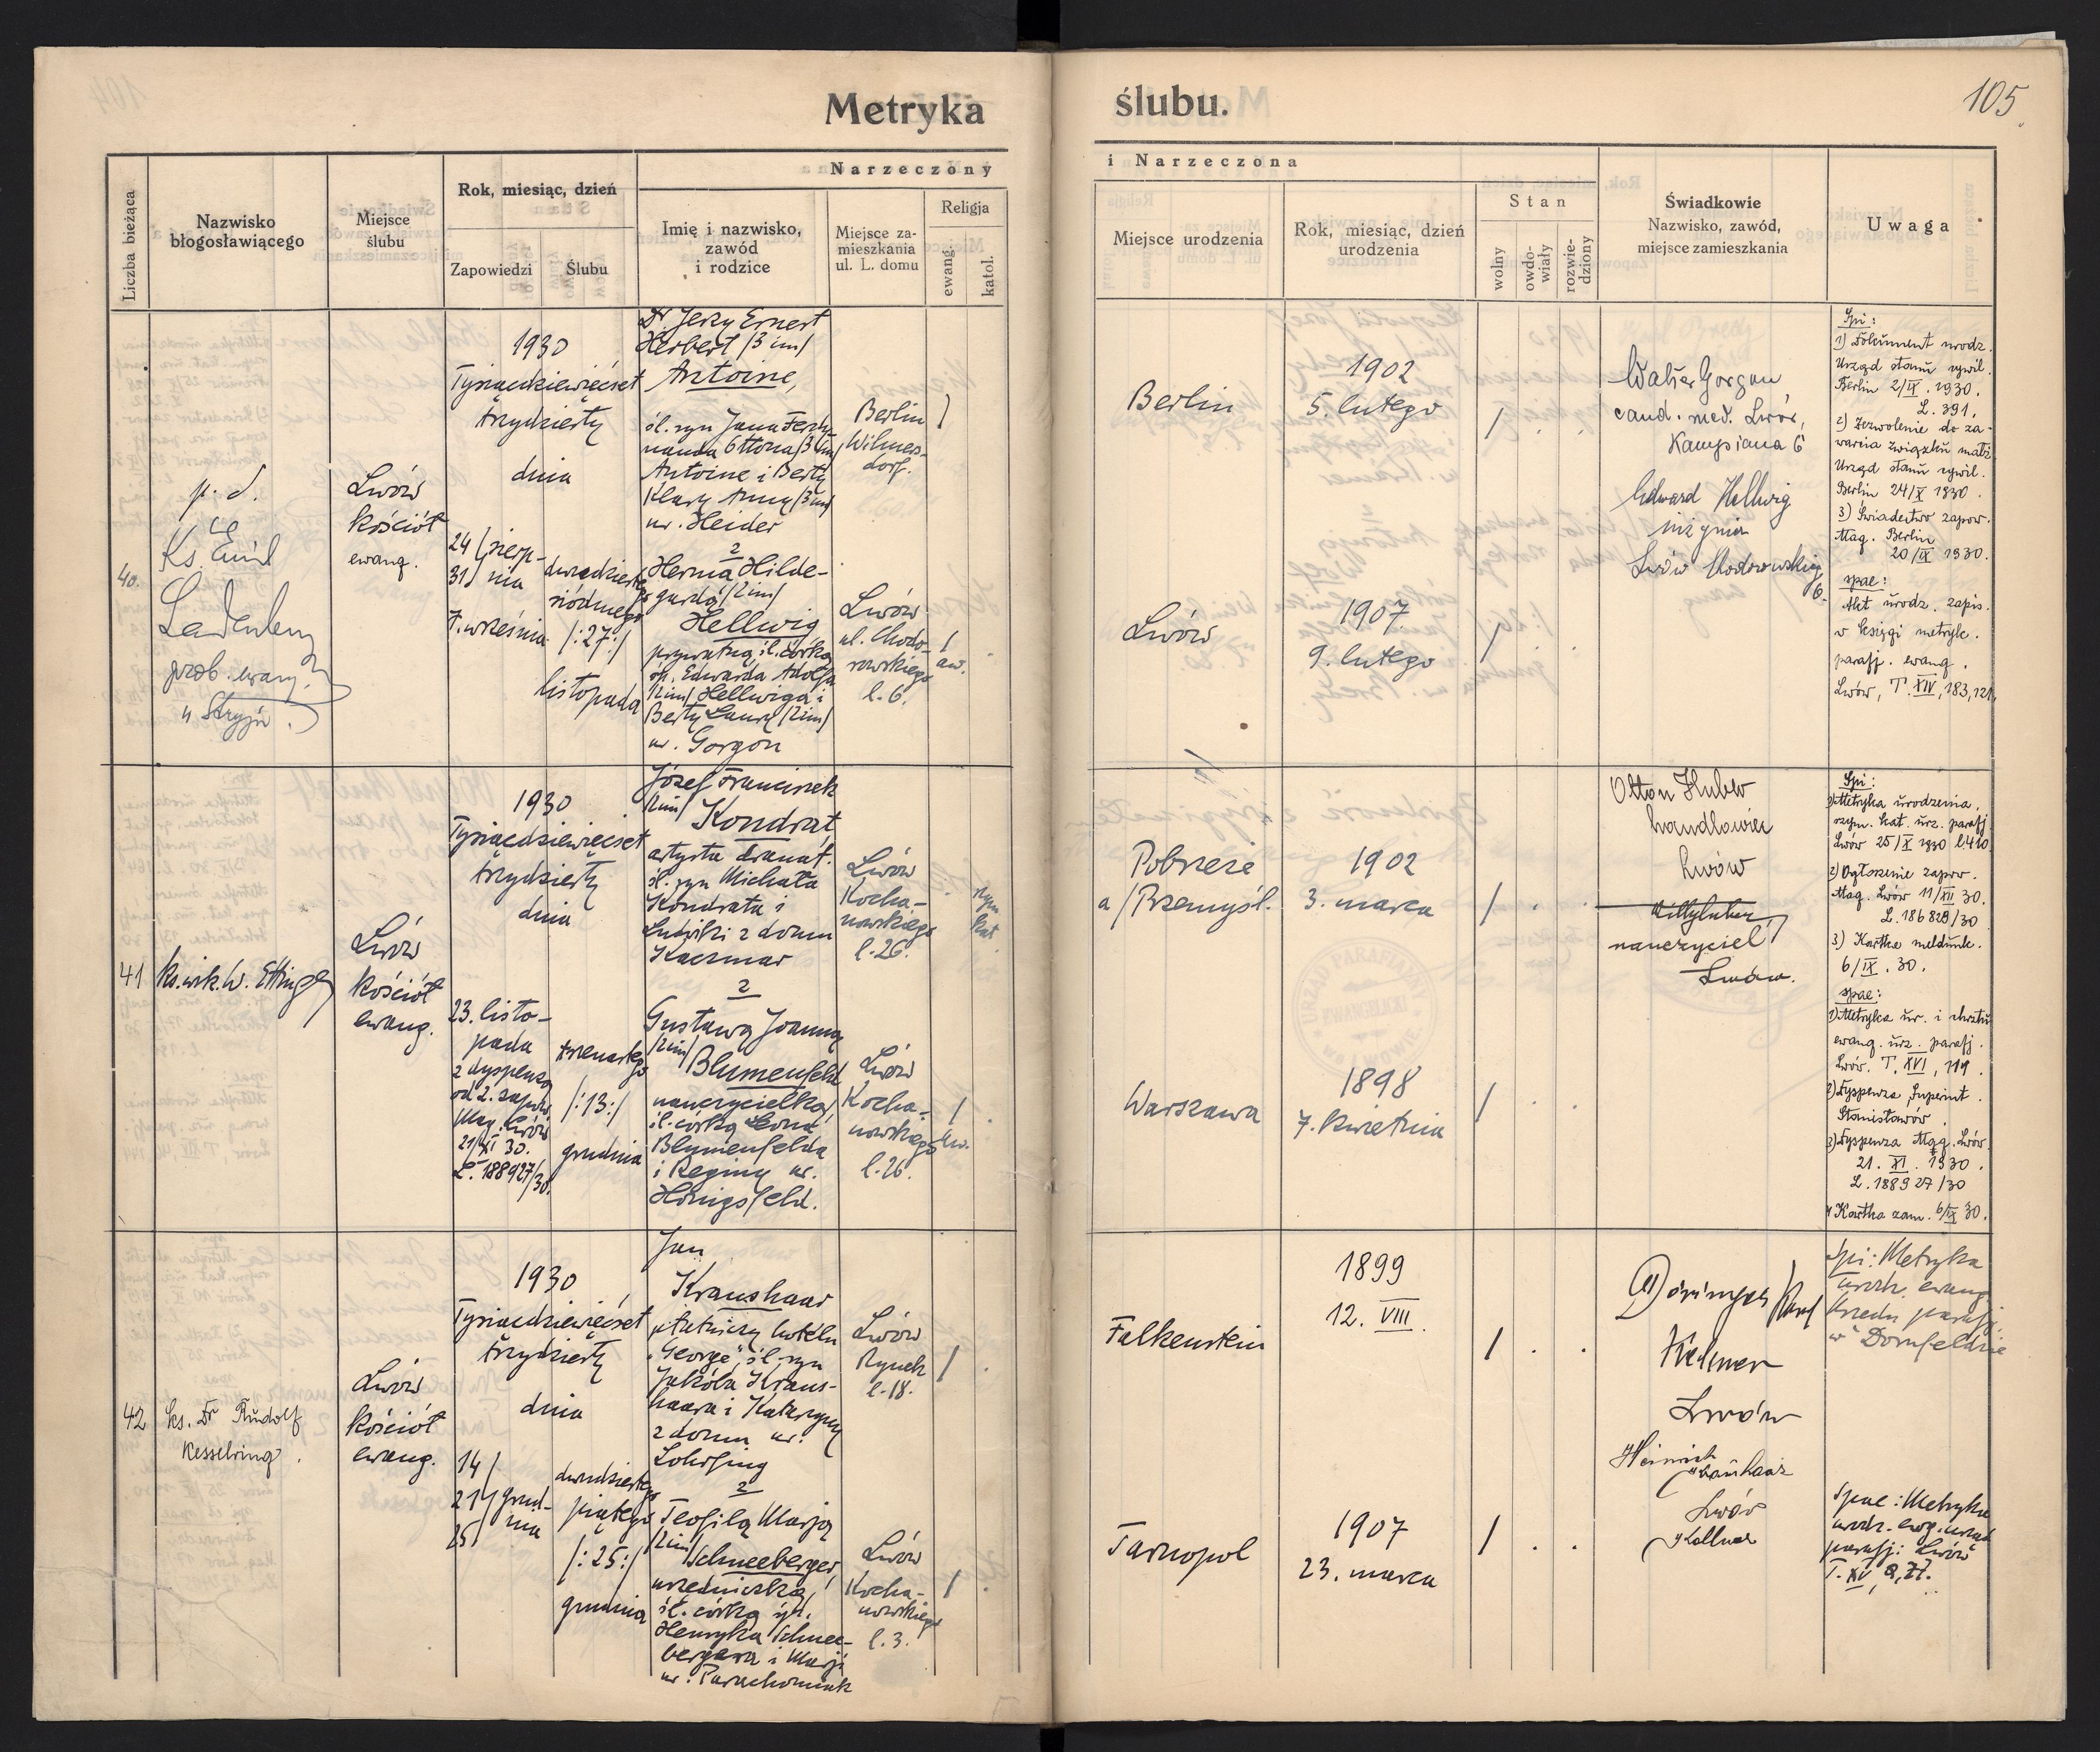 Metryka ślubu.
105
Liczba bieżąca
Nazwisko
błogosławiącego
Miejsce
ślubu
Rok, miesiąc, dzień
Zapowiedzi
Ślubu
Narzeczony
Imię i nazwisko,
zawód
i rodzice
Miejsce za-
mieszkania
ul. L. domu
Religja
ewang.
katol.
i Narzeczona
Miejsce urodzenia
Rok, miesiąc, dzień
urodzenia
Stan
wolny
owdo-
wiały
rozwie-
dziony
Świadkowie
Nazwisko, zawód,
miejsce zamieszkania
Uwaga
40.
p. d.
Ks. Emil
Ladenberg
prob. ewang.
Stryju
Lwów
kościół
ewang.
1930
Tysiącdziewięćset
trzydzieści
dnia
24/ sierp-
31/ nia
7. września
dwudziestego
siódmego
/:27:/
listopada
Dr Jerzy Ernest
Herbert /3 im/
Antoine,
śl. syn Jana Ferdy-
nanda Ottona /3 im/
Antoine i Berty
Klary Anny /3 im/
ur. Heider
2
Herma Hilde-
gardą /2 im/
Hellwig
prywatną śl. córką
śp. Edwarda Adolfa
/2 im/ Hellwiga i
Berty Laury /2 im/
ur. Gorgon
Berlin
Wilmers-
dorf.
Lwów
ul. Chodo-
rowskiego
l. 6.
/
/
aw.
Berlin
Lwów
1902
5. lutego
1907
9. lutego
/ . .
/ . .
Walter Gorgon
cand. med. Lwów,
Kampiana 6
Edward Hellwig
inżynier
Lwów Chodorowskiego
6.
Spi:
1) Dokument urodz.
Urząd stanu cywil.
Berlin 2/IX. 1930.
L. 391.
2) Zezwolenie do za-
warcia związku małż.
Urząd stanu cywil.
Berlin 24/X 1930.
3) Świadectwo zapow.
Mag. Berlin
20/IX 1930.
spae:
Akt urodz. zapis.
w księgi metryk.
parafj. ewang.
Lwów, T. XIV, 183, 121.
41
ks. wik. W. Ettinger
Lwów
kościół
ewang.
1930
Tysiącdziewięćset
trzydzieści
dnia
23. listo-
pada
z dyspenzą
od 2. zapow.
Mag. Lwów
21/XI 30.
L. 188927/30.
trzynastego
/:13:/
grudnia
Józef Franciszek
/2 im/ Kondrat
artysta dramat.
śl. syn Michała
Kondrata i
Ludwiki z domu
Kaczmar
2
Gustawą Joanną
/2 im/
Blumenfeld
nauczycielką,
śl. córką Leona
Blumenfelda
i Reginy ur.
Hönigsfeld.
Lwów
Kocha-
nowskiego
l. 26.
Lwów
Kocha-
nowskiego
l. 26.
rzym.
kat.
/
aw.
Pobereże
a/Przemyśl.
Warszawa
1902
3. marca
1898
7. kwietnia
/ . .
/ . .
URZĄD PARAFIALNY
EWANGELICKI
Otton Huber
handlowiec
Lwów
nauczyciel
Lwów.
Spi:
1) Metryka urodzenia.
rzym. kat. urz. parafj.
Lwów 25/X 1930 l. 410.
2) Ogłoszenie zapow.
Mag. Lwów 11/XII 30.
L. 186829/30
3) Kartka meldunk.
6/IX. 30.
spae:
1) Metryka ur. i chrztu
ewang. urz. parafj.
Lwów. T. XVI, 119.
2) Dyspenza Superint.
Stanisławów.
3) Dyspenza Mag. Lwów.
21. XI. 1930.
L. 188927/30
4 Kartka zam. 6/IX 30.
42
ks. Dr Rudolf
Kesselring.
Lwów
kościół
ewang.
1930
Tysiącdziewięćset
trzydzieści
dnia
14/
21/ grud-
25/ nia
dwudziestego
piątego
/:25:/
grudnia
Jan
Kraushaar
płatniczy hotelu
"George", śl. syn
Jakóba Kraus-
haara i Katarzyny
z domu ur.
Lohrfing
2
Teofilą Marją
/2 im/
Schneeberger,
urzędniczką,
śl. córką śp.
Henryka Schnee-
bergera i Marji
ur. Parachoniak
Lwów
Rynek
l. 18.
Lwów
Kocha-
nowskiego
l. 3.
/ .
/ .
Falkenstein
Tarnopol
1899
12. VIII.
1907
23. marca
/ . .
/ . .
Kellner
Lwów
Heinrich
Kraushaar
Lwów
Kellner
Spi: Metryka
urodz. ewang.
Urzędu parafj.
w Dornfeldzie
Spae: Metryka
urodz. ewg. urząd
parafj: Lwów
T. XV, 8, 27.